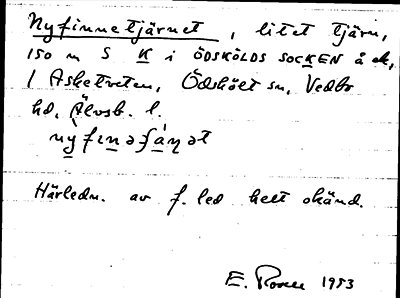 Nyfinnetjärnet, litet tjärn,
150 m S K i ÖDSKÖLDS SOCKEN å ek,
/ Asketveten, Ödskölt sn, Vedbo
hd, Älvsb. l.
nyfɪnəʃäŋət
Härledn. av f. led helt okänd.
E. 1953